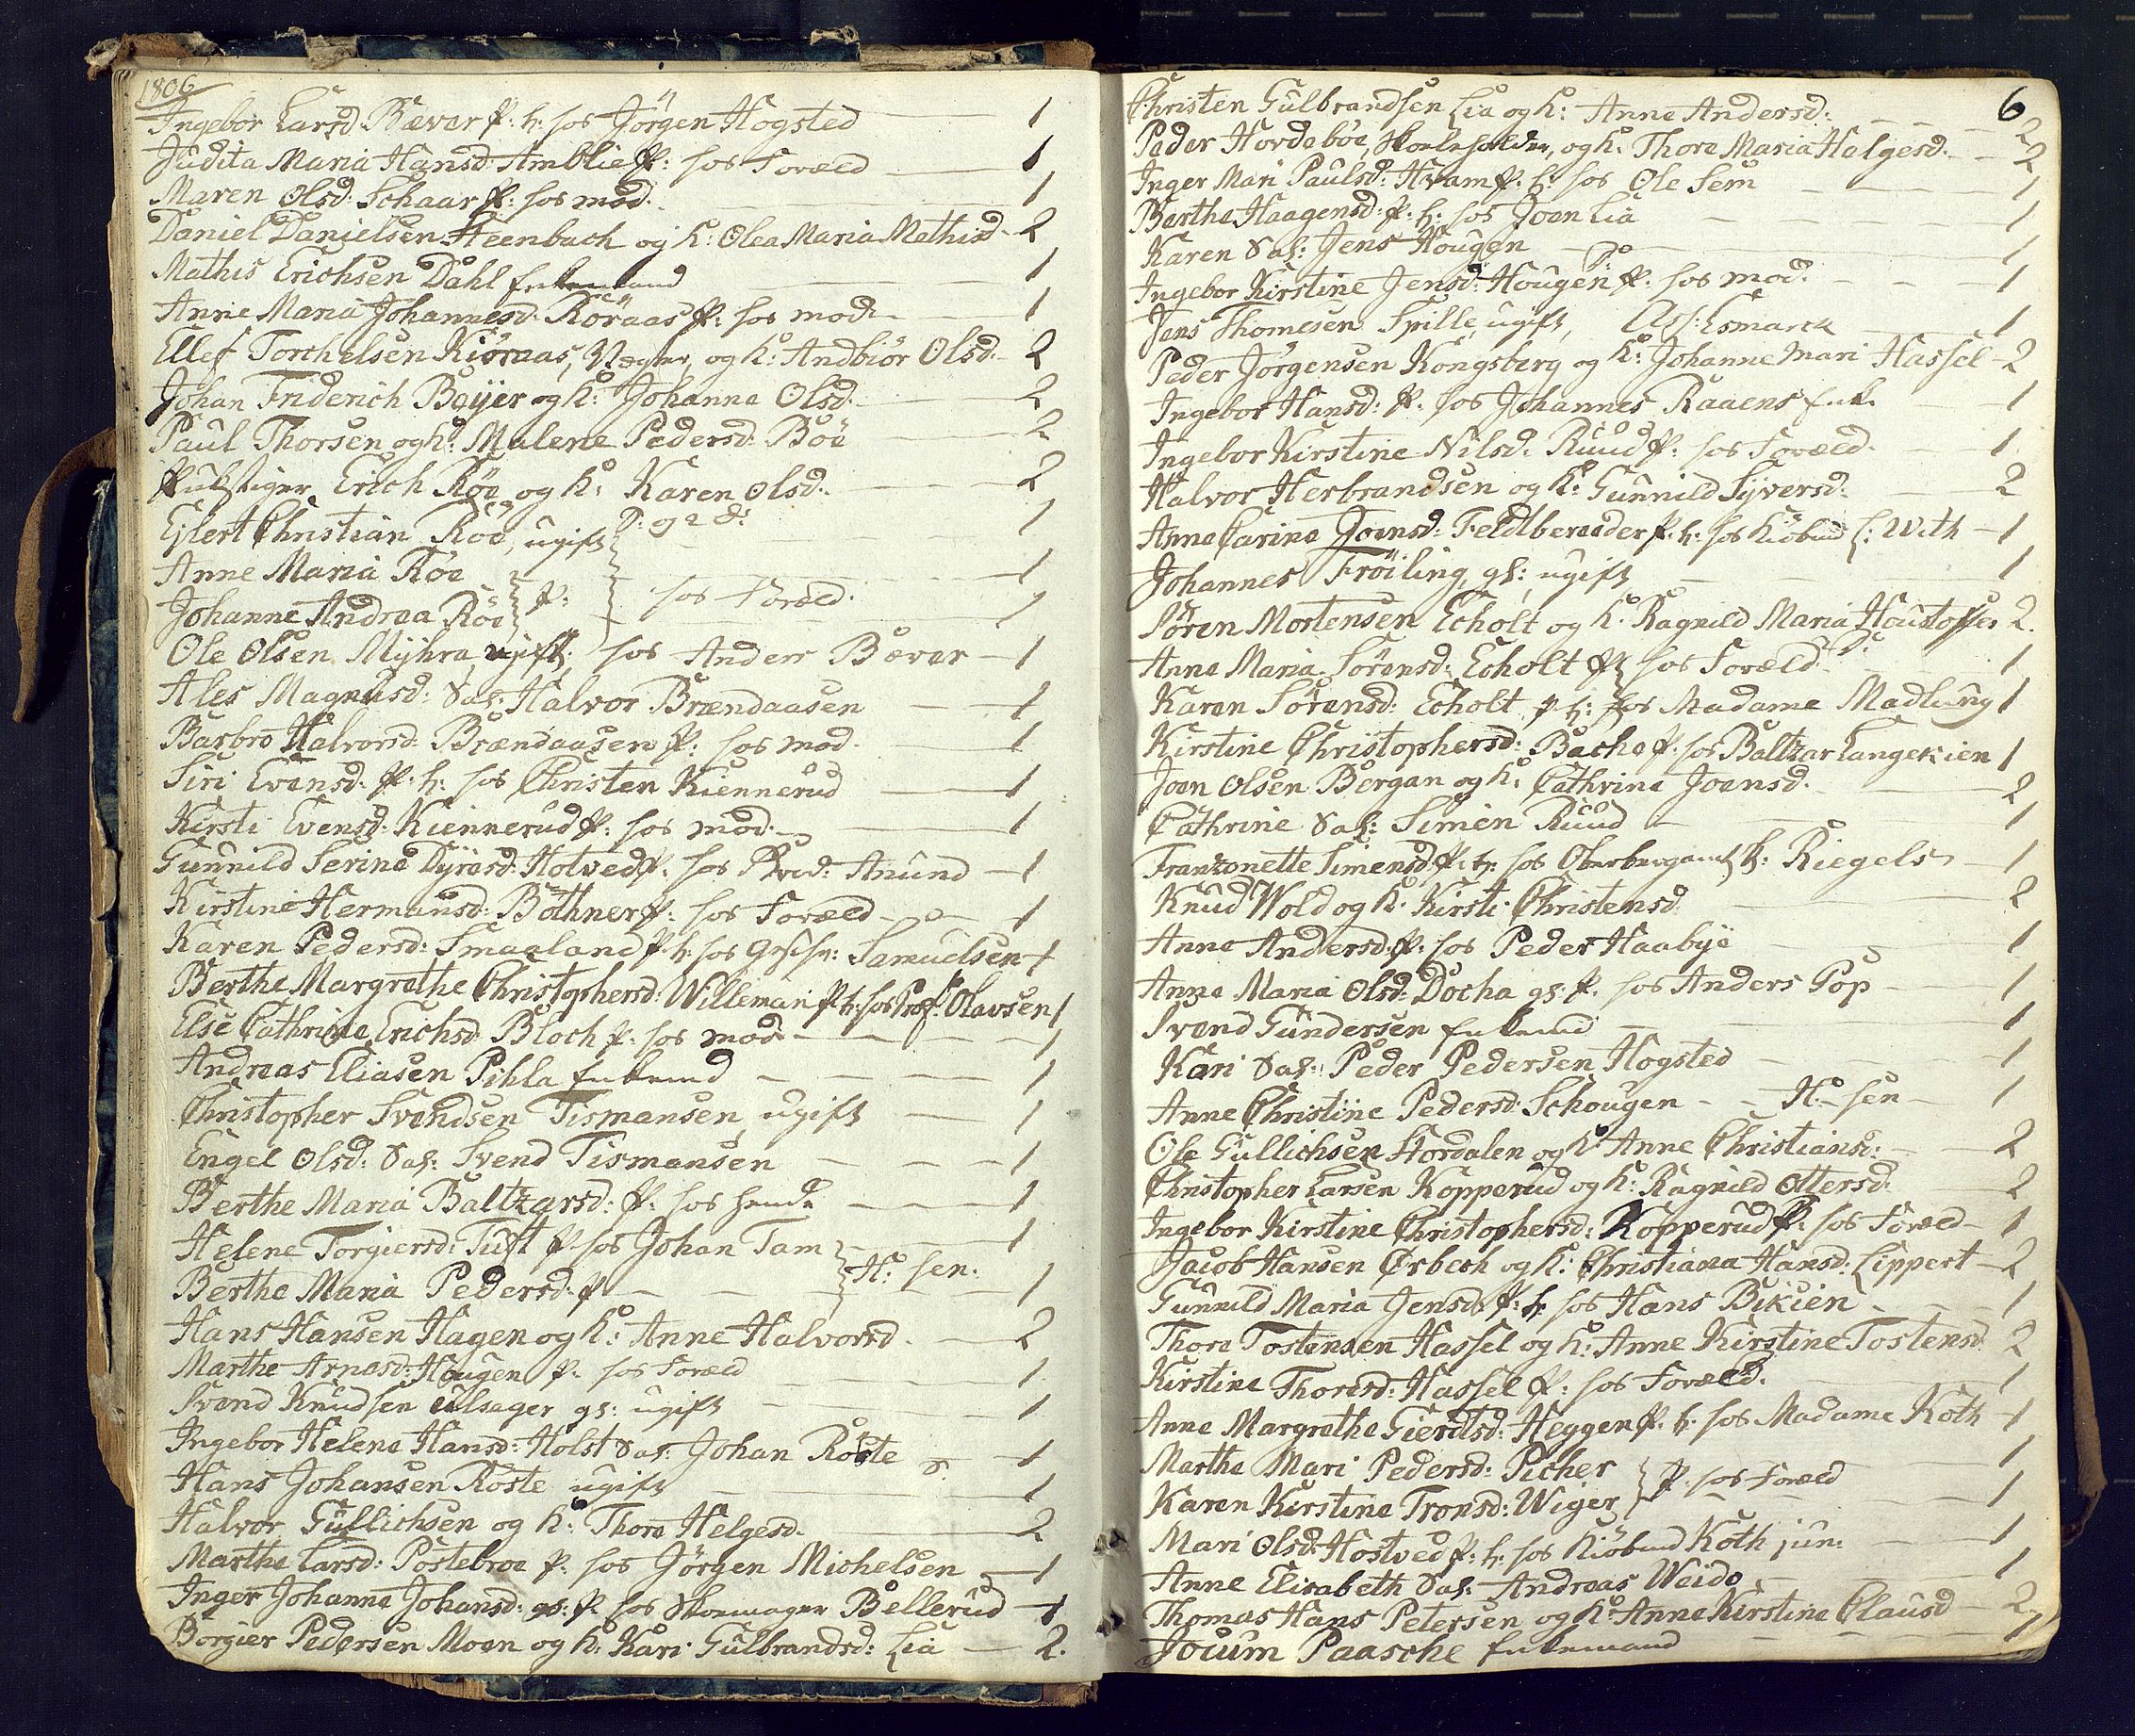 1806
Ingebor Larsd. Bæver p: h: hos Jörgen Hogsted 1
Judita Maria Hansd: Amblie p: hos Foræld 1
Maren Olsd: Schaar p: hos mod. 1
Daniel Danielsen Steenbach og K: Olea Maria Mathisd 2
Mathis Erichsen Dahl Enkemand 1
Anne Maria Johannesd. Röraas p: hos mod. 1
Ellef Torchelsen Kiöraas, Vegter, og K: Andbiör Olsd. 2
Johan Friderich Beyer og K: Johanna Olsd. 2
Paul Thorsen og K: Malene Pedersd. Böe 2
Pukstiger Erich Röe og K: Karen Olsd. 2
Eylert Christian Röe, ugift 1
Anne Maria Röe p: hos Foræld. 1
Johanne Andrea Röe 1
Ole Olsen Myhra, ugift, hos Anders Bæver 1
Ales Magnusd: Sal: Halvor Brændaasen 1
Barbro Halvorsd: Brændaasen p: hos mod. 1
Siri Evensd. p: h: hos Christen Kiennerud 1
Kirsti Evensd: Kiennerud p: hos mod. 1
Gunnild Serine Dyresd: Hotved p. hos Amund 1
Kirstine Hermansd: Böthner p: hos Foræld 1
Karen Pedersd: Smaaland p. h: hos Samuelsen 1
Berthe Margrethe Christophersd: Willeman p. h: hos Prof: Olavsen 1
Else Cathrine Erichsd Bloch p. hos mod 1
Andreas Eliasen Pihla Enkemd 1
Christopher Svendsen Tismansen, ugift 1
Engel Olsd: Sal: Svend Tismansen 1
Berthe Maria Baltzersd: p: hos hende 1
Helene Torgiersd: Tuft p hos Johan Tam 1
Berthe Maria Pedersd: p H: sen. 1
Hans Hansen Hagen og K: Anne Halvorsd. 2
Marthe Arnesd: Hougen p. hos Foræld 1
Svend Knudsen Ulsager gs: ugift 1
Ingebor Helene Hansd: Holst Sal: Johan Röste 1
Hans Johansen Röste ugift 1
Halvor Gullichsen og K: Thore Helgesd. 2
Marthe Larsd: Postebroe p. hos Jörgen Michelsen 1
Inger Johanne Johansd: gs: p hos Skoemager Bellerud 1
Borgier Pedersen Moen og K: Kari Gulbrandsd: Lia 2.
6
Christen Gulbrandsen Lia og K: Anne Andersd: 2
Peder Hordeböe, Skoleholder, og K: Thore Maria Helgesd. 2
Inger Mari Paulsd: Hvam p. h: hos Ole Sem 1
Berthe Haagensd: p. h: hos Joen Lia 1
Karen Sal: Jens Hougen 1
Ingebor Kirstine Jensd: Hougen p: hos mod. 1
Jens Thomesen Spille, ugift, Ass: Esmarck 1
Peder Jörgensen Kongsberg og K: Johanne Mari Hassel 2
Ingebor Hansd: p. hos Johannes Raaens Enke 1
Ingebor Kirstine Nilsd. Ruud p: hos Foræld. 1
Halvor Herbrandsen og K: Gunnild Syversd: 2
Anne Carine Joensd: Feldbereder p. h: hos Kiöbmd With 1
Johannes Fröiling gs: ugift 1
Sören Mortensen Echolt og K. Ragnild Maria 2.
Anne Maria Sörensd: Echolt p hos Foræld. 1
Karen Sörensd: Echolt p h: hos Madame Madlung 1
Kirstine Christophersd: Bache p. hos Baltzar Langekien 1
Joen Olsen Bergan og K: Cathrine Joensd. 2
Cathrine Sal: Simen Ruud 1
Franzonette Simensd: p: h: hos Oberbergamts Riegels 1
Knud Wold og K. Kirsti Christensd. 2
Anne Andersd: p: hos Peder Haabye 1
Anne Maria Olsd: Docha gs. p. hos Anders Pop 1
Svend Gundersen Enkemd 1
Kari Sal: Peder Pedersen Hogsted 1
Anne Christine Pedersd: Schougen H: sen 1
Ole Gullichsen Stordalen og K Anne Christiansd: 2
Christopher Larsen Kopperud og K: Ragnild Ottersd. 2
Ingebor Kirstine Christophersd: Kopperud p: hos Foræld 1
Jacob Hansen Örbech og K: Christiana Hansd: Lippert 2
Gunnild Maria Jensd: p: h: hos Hans Bikien 1
Thore Tostensen Hassel og K: Anne Kirstine Tostensd. 2
Kirstine Thoresd: Hassel p: hos Foræld. 1
Anne Margrethe Gierdtsd: Heggen p. h: hos Madame Koth 1
Marthe Mari Pedersd: Picher p. hos Foræld 1
Karen Kirstine Tronsd: Wiger 1
Mari Olsd: Hostved p: h: hos Kiöbmd Koth jun: 1
Anne Elisabeth Sal: Andreas Weido 1
Thomas Hans Petersen og K: Anne Kirstine Clausd 2
Jocum Paasche Enkemand 1